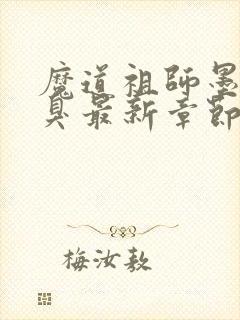 魔道祖師墨
臭最新章節
梅汝敖